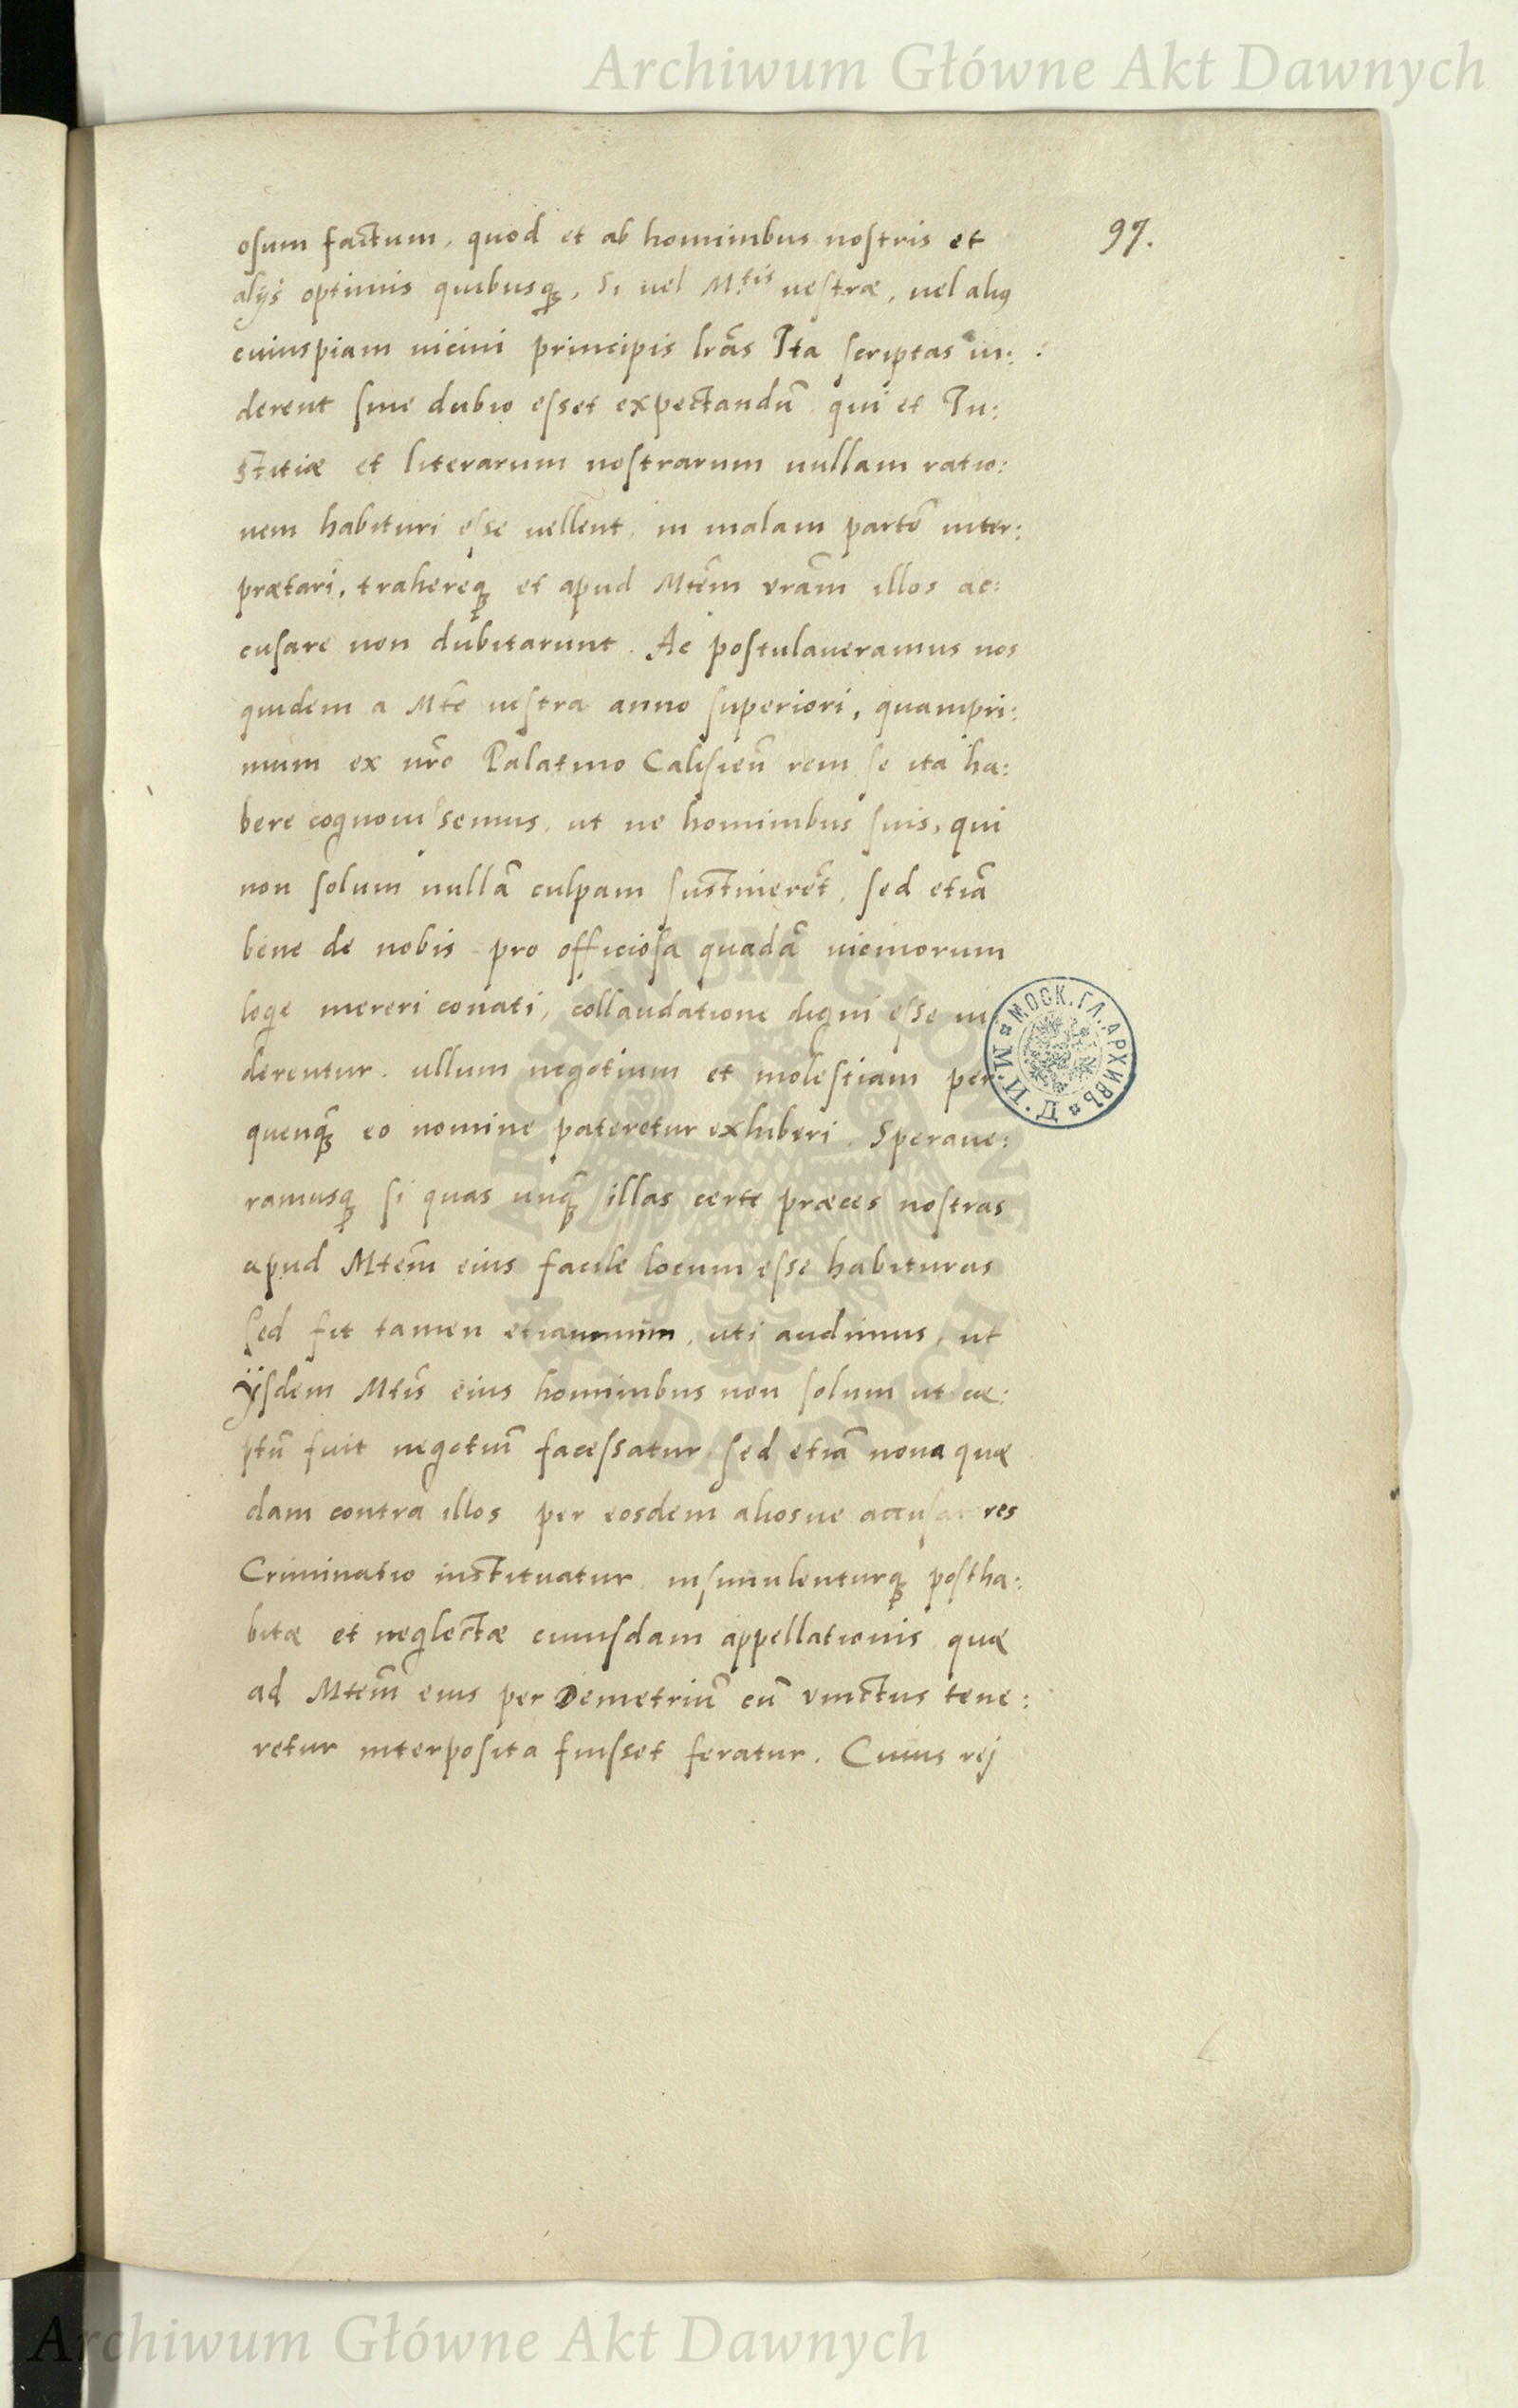 Archiwum Główne Akt Dawnych
97.
osum factum, quod et ab hominibus nostris et
alijs optimis quibusq;, Si uel M.tis uestræ, uel aliꝰ
cuiuspiam uicini principis lr̃as Ita scriptas ui:
derent sine dubio esset expectandũ qui et Iu:
stitiæ et literarum nostrarum nullam ratio:
nem habituri esse uellent, in malam partẽ inter:
prætari, trahereq; et apud Mtem̃ vram̃ illos ac:
cusare non dubitarunt. Ac postulaueramus nos
quidem a Mte uestra anno superiori, quampri:
mum ex nr̃o Palatino Calisien̄ rem se ita ha:
bere cognouissemus, ut ne hominibus suis, qui
non solum nullã culpam sustinerẽt, sed etiã
bene de nobis pro officiosa quadã uicinorum
lege mereri conati, collaudatione digni esse ui
derentur. ullum negotium et molestiam per
quenq̃; eo nomine pateretur exhiberi. Speraue:
ramusq; si quas unq̃; illas certe præces nostras
apud Mtem̃ eius facile locum esse habituras
Sed fit tamen etiamnum, uti audimus, ut
ijsdem Mtis̃ eius hominibus non solum ut cæ:
ptũ fuit negotiũ facessatur sed etiã noua quæ
dam contra illos per eosdem aliosue accusatores
Criminatio instituatur, insimulenturq; postha:
bitæ et neglectæ cuiusdam appellationis quæ
ad Mtem̃ eius per Demetriũ cũ vinctus tene:
retur interposita fuisset feratur. Cuius rej
МОСК. ГЛ. АРХИВЪ
М. И. Д.
ARCHIWUM GŁÓWNE
AKT DAWNYCH
Archiwum Główne Akt Dawnych